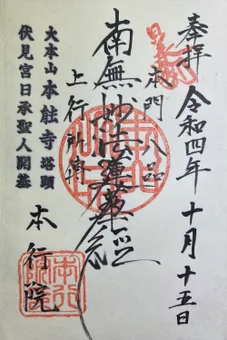 奉拝 令和四年十月十五日
本門八品
南無妙法蓮華経
上行所伝
大本山 本能寺 塔頭
伏見宮日承聖人開基
本行院